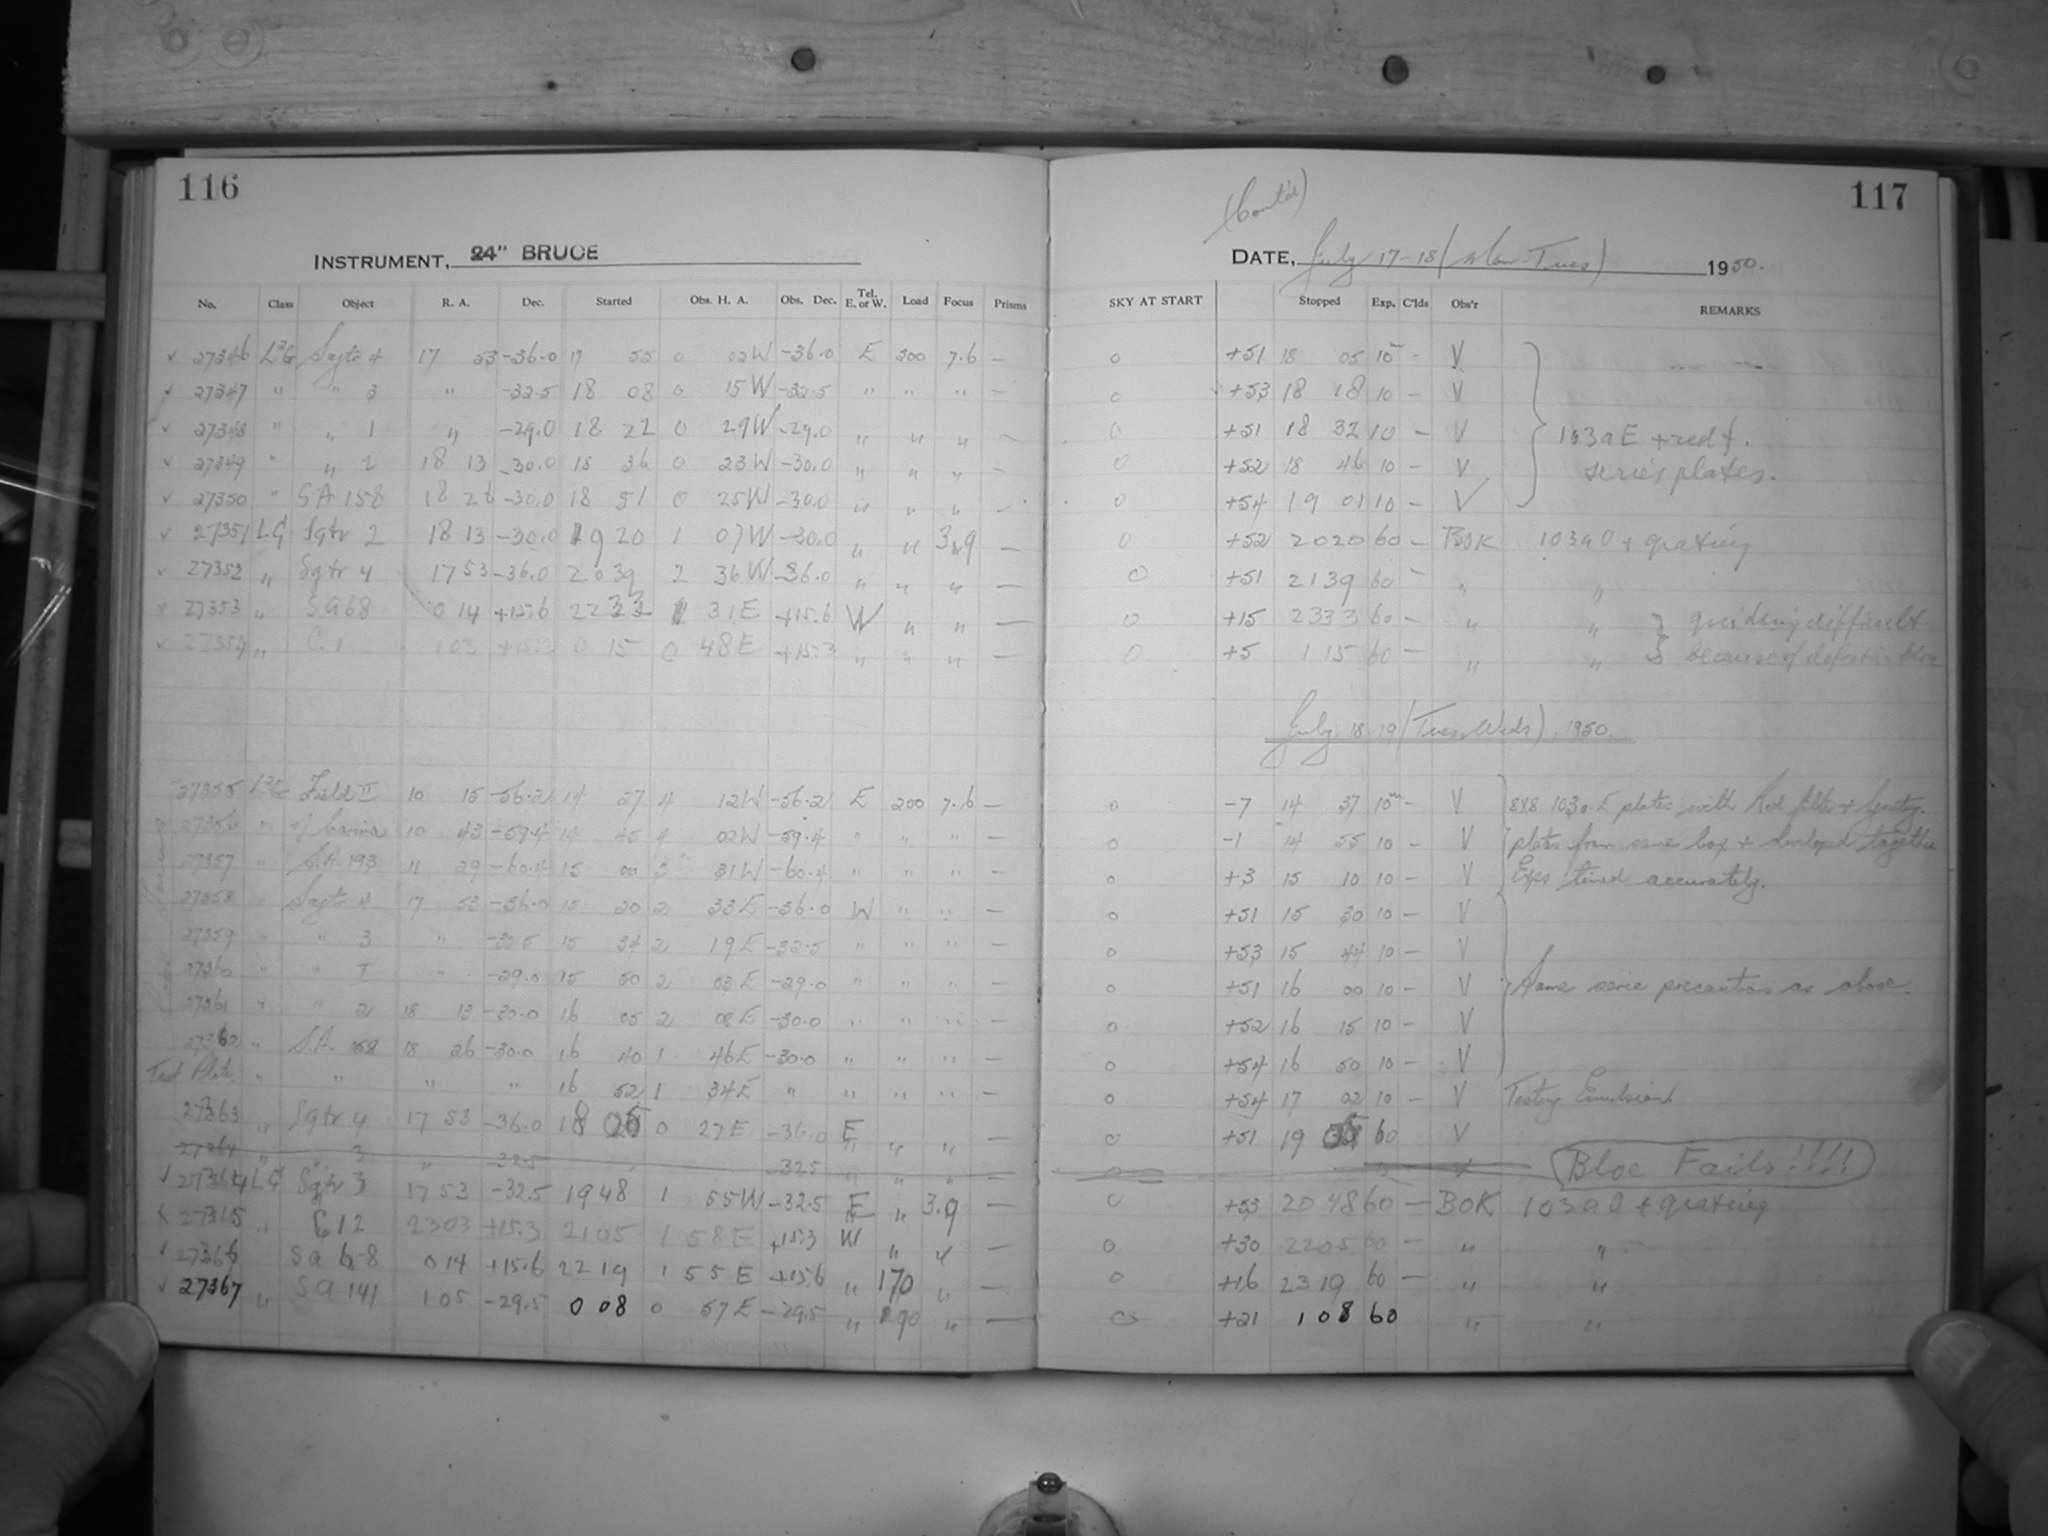 116
INSTRUMENT, 24" BRUCE
No. Class Object R. A. Dec. Started Obs. H. A. Obs. Dec. Tel. E. or W. Load Focus Prisms
✓ 27346 L2G Sagtr 4 17 53 -36.0 17 55 0 02W -36.0 E 200 7.6 –
✓ 27347 " " 3 " -32.5 18 08 0 15W -32.5 " " " –
✓ 27348 " " 1 " -29.0 18 22 0 29W -29.0 " " " –
✓ 27349 " " 2 18 13 -30.0 18 36 0 23W -30.0 " " " –
✓ 27350 " SA 158 18 26 -30.0 18 51 0 25W -30.0 " " " –
✓ 27351 LG Sgtr 2 18 13 -30.0 19 20 1 07W -30.0 " " 3.9 –
✓ 27352 " Sgtr 4 17 53 -36.0 20 39 2 36W -36.0 " " " –
27353 " SA 68 0 14 +15.6 22 33 1 31E +15.6 W " " –
✓ 27354 " C.1 1 03 +15.3 0 15 0 48E +15.3 " " " –
27355 L2G Field II 10 15 -56.2 14 27 4 12W -56.2 E 200 7.6 –
27356 " of Carina 10 43 -59.4 14 45 4 02W -59.4 " " " –
27357 " S.A. 193 11 29 -60.4 15 00 3 31W -60.4 " " " –
27358 " Sagtr 4 17 53 -36.0 15 20 2 33E -36.0 W " " –
27359 " " 3 " -32.5 15 34 2 19E -32.5 " " " –
27360 " " I " -29.0 15 50 2 03E -29.0 " " " –
27361 " " 2 18 13 -30.0 16 05 2 08E -30.0 " " " –
27362 " S.A. 158 18 26 -30.0 16 40 1 46E -30.0 " " " –
Test Plate " " " " 16 52 1 34E " " " " –
27363 " Sgtr 4 17 53 -36.0 18 05 0 27E -36.0 E " " –
27364 " " 3 " -32.5 -32.5 " " " –
✓ 27364 LG Sgtr 3 17 53 -32.5 19 48 1 55W -32.5 E " 3.9
27365 " C 12 23 03 +15.3 21 05 1 58E +15.3 W " " –
✓ 27366 SA 68 0 14 +15.6 22 19 1 55E +15.6 " 170 " –
✓ 27367 " SA 141 1 05 -29.5 0 08 0 57E -29.5 " 190 " –
117
(Cont'd)
DATE, July 17-18 (Mon-Tues) 1950.
SKY AT START Stopped Exp. C'lds Obs'r REMARKS
0 +51 18 05 10m - V
0 +53 18 18 10 – V
0 +51 18 32 10 – V 103a E + red f.
0 +52 18 46 10 – V series plates.
0 +54 19 01 10 – V
0 +52 20 20 60 – BOK 103a O + grating
0 +51 21 39 60 – " "
0 +15 23 33 60 – " " guiding difficult
0 +5 1 15 60 – " " because of defective bloc
July 18-19 (Tues-Weds), 1950.
0 -7 14 37 10m – V 8x8 103a-E plates with Red filter + Grating.
0 -1 14 55 10 – V plates from same box + developed together
0 +3 15 10 10 – V Exps timed accurately.
0 +51 15 30 10 – V
0 +53 15 44 10 – V
0 +51 16 00 10 – V Same precautions as above.
0 +52 16 15 10 – V
0 +54 16 50 10 – V
0 +54 17 02 10 – V Testing Emulsion
0 +51 19 05 60 V
0 V Bloc Fails!!!!
0 +53 20 48 60 – BOK 103a O + grating
0 +30 22 05 60 – " "
0 +16 23 19 60 – " "
0 +21 1 08 60 " "